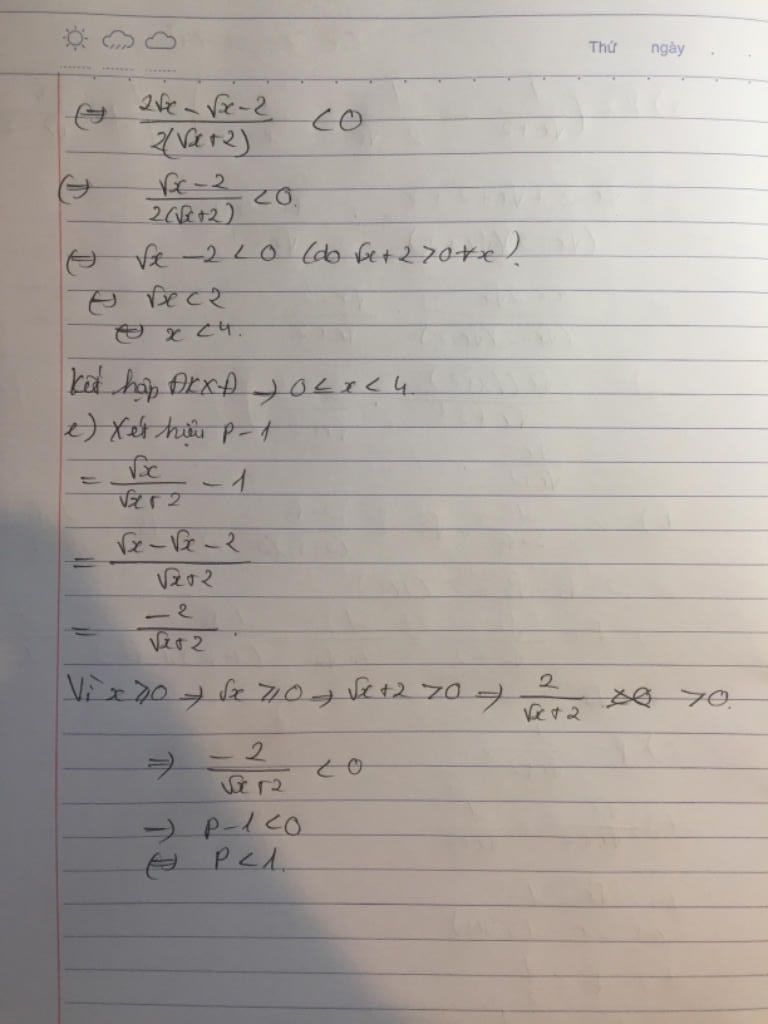 Thứ ngày . .
⇔ (2√x - √x - 2)/(2(√x+2)) < 0
⇔ (√x - 2)/(2(√x+2)) < 0.
⇔ √x - 2 < 0 (do √x+2 > 0 ∀x).
⇔ √x < 2
⇔ x < 4.
Kết hợp ĐKXĐ → 0 ≤ x < 4.
e) Xét hiệu P-1
= √x/(√x+2) - 1
= (√x - √x - 2)/(√x+2)
= -2/(√x+2).
Vì x ⩾ 0 → √x ⩾ 0 → √x+2 > 0 → 2/(√x+2) > 0.
⇒ -2/(√x+2) < 0
→ P-1 < 0
⇔ P < 1.